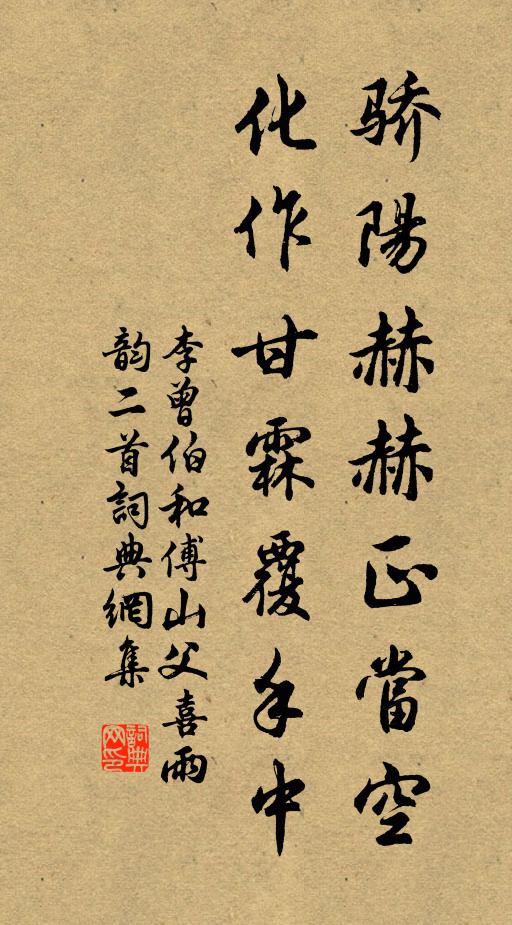 骄陽赫赫正當空
化作甘霖覆手中
李曾伯和傅山父喜雨
韵二首詞典網集
詞典網印